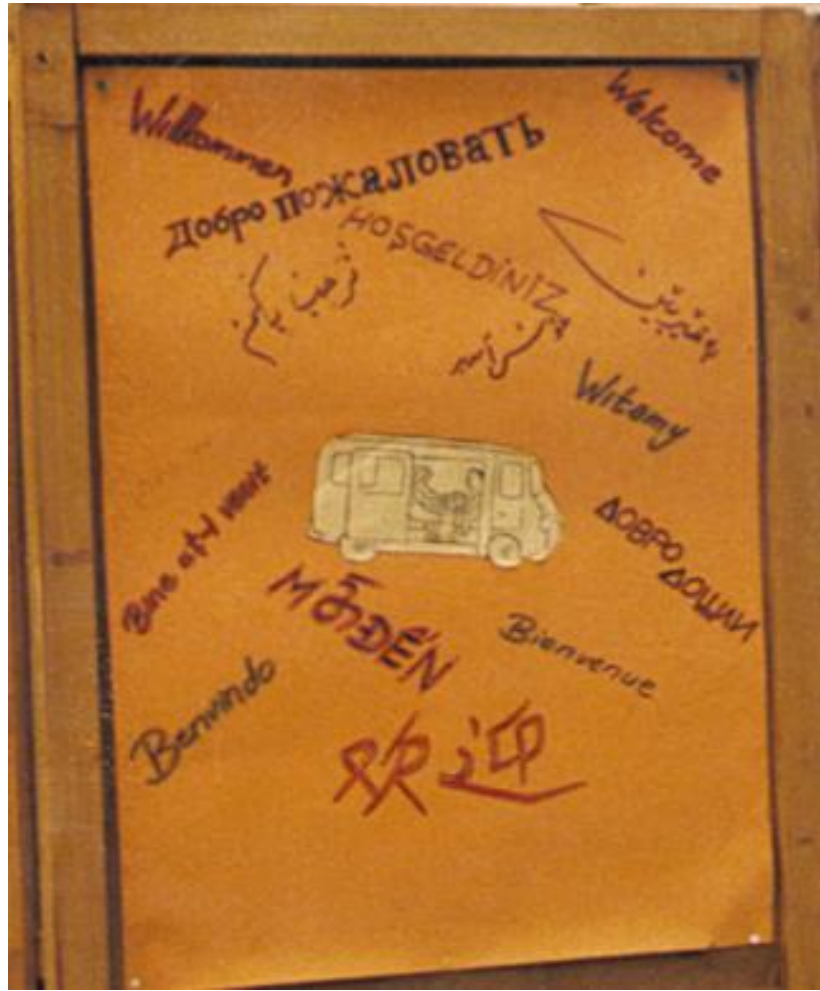 Willkommen
Welcome
Добро пожаловать
HOŞGELDİNİZ
Witamy
Bine ați venit
ДОБРО
ДОШЛИ
ĐẾN
Bienvenue
Benvindo
欢迎